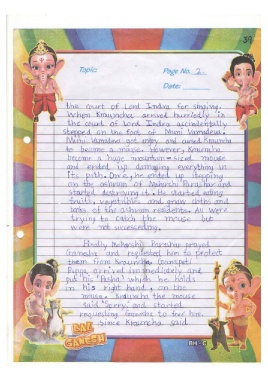 39
Topic:
Page No. 2
Date:
the court of Lord Indra for singing.
When Krauncha arrived hurriedly in
the court of Lord Indra accidentally
stepped on the foot of Muni Vamdeva.
Muni Vamdeva got angry and cursed Krauncha
to become a mouse. However, Krauncha
became a huge mountain-sized mouse
and ended up damaging everything in
its path. Once, he ended up stepping
on the ashram of Maharshi Parashar and
started destroying it. He started eating
fruits, vegetables and gnaw cloths and
books of the ashram residents. All were
trying to catch the mouse but
were not succeeding.
Finally Maharshi Parashar prayed
Ganesha and requested him to protect
them from Krauncha. Ganpati
Bappa arrived immediately and
put his 'Pasha' which he holds
in his right hand, on the
mouse. Krauncha the mouse
said "Sorry" and started
requesting Ganesha to free him.
Since Krauncha said
BAL
GANESH